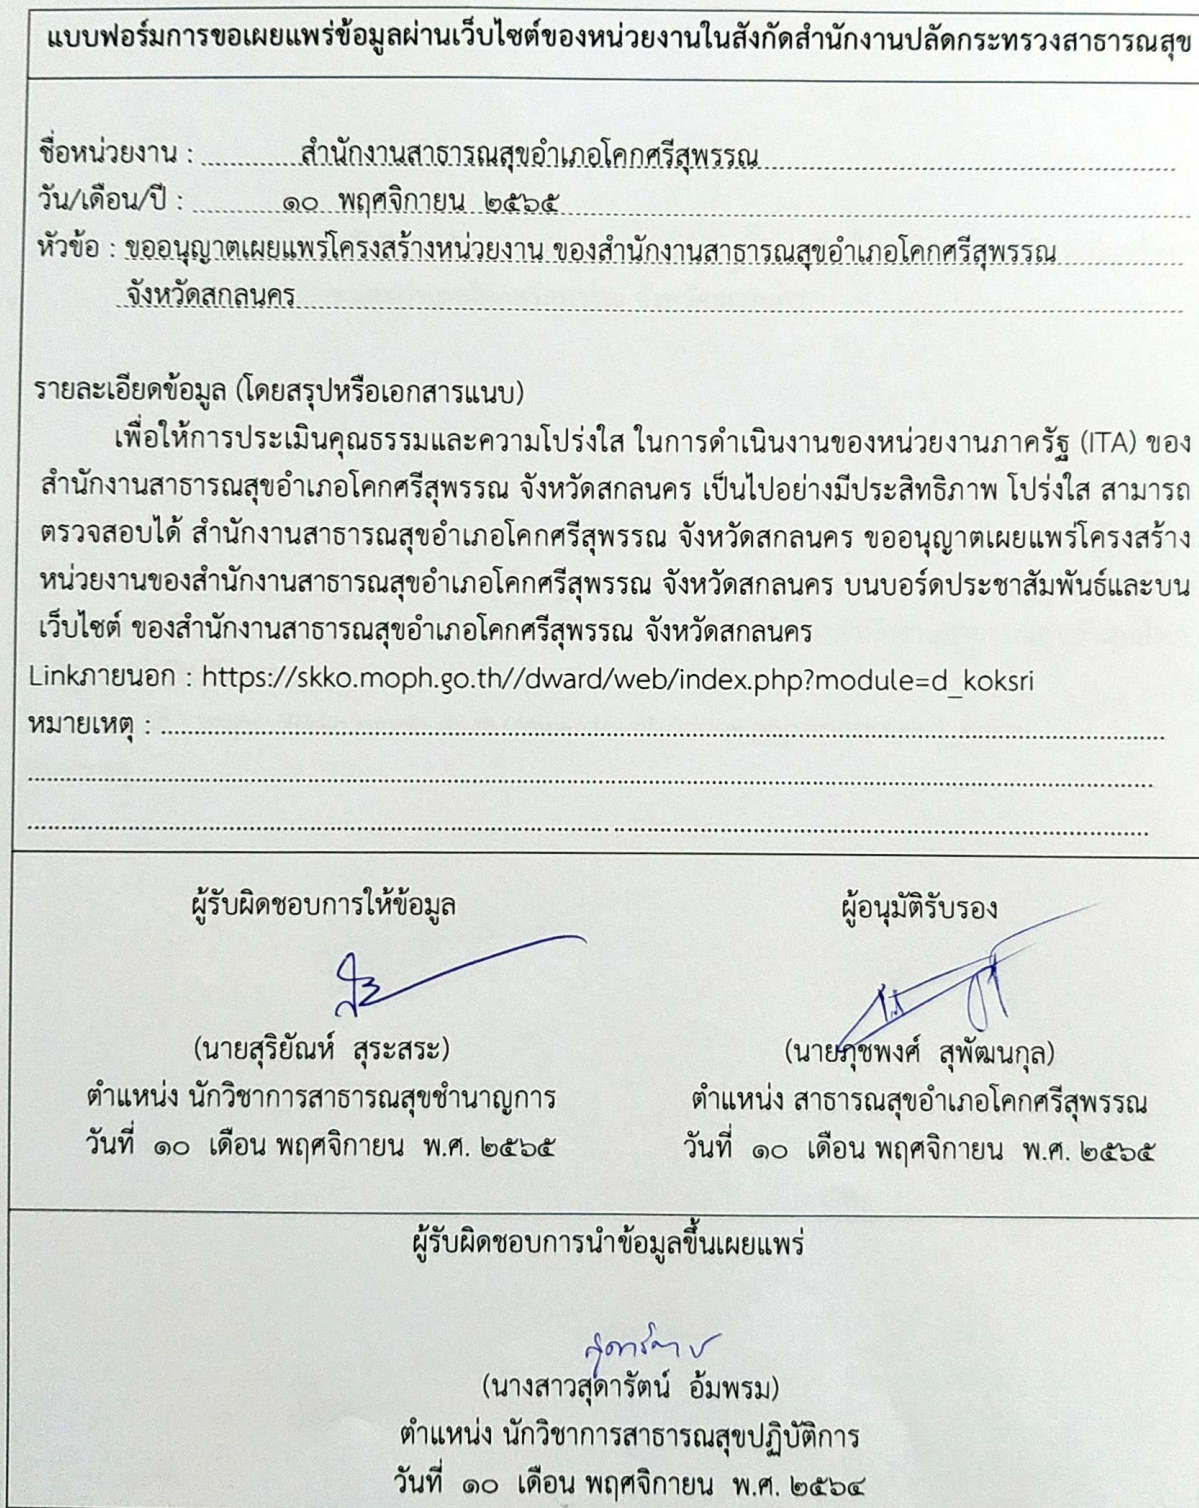 แบบฟอร์มการขอเผยแพร่ข้อมูลผ่านเว็บไซต์ของหน่วยงานในสังกัดสำนักงานปลัดกระทรวงสาธารณสุข
ชื่อหน่วยงาน : สำนักงานสาธารณสุขอำเภอโคกศรีสุพรรณ
วัน/เดือน/ปี : ๑๐ พฤศจิกายน ๒๕๖๕
หัวข้อ : ขออนุญาตเผยแพร่โครงสร้างหน่วยงาน ของสำนักงานสาธารณสุขอำเภอโคกศรีสุพรรณ
จังหวัดสกลนคร
รายละเอียดข้อมูล (โดยสรุปหรือเอกสารแนบ)
เพื่อให้การประเมินคุณธรรมและความโปร่งใส ในการดำเนินงานของหน่วยงานภาครัฐ (ITA) ของ
สำนักงานสาธารณสุขอำเภอโคกศรีสุพรรณ จังหวัดสกลนคร เป็นไปอย่างมีประสิทธิภาพ โปร่งใส สามารถ
ตรวจสอบได้ สำนักงานสาธารณสุขอำเภอโคกศรีสุพรรณ จังหวัดสกลนคร ขออนุญาตเผยแพร่โครงสร้าง
หน่วยงานของสำนักงานสาธารณสุขอำเภอโคกศรีสุพรรณ จังหวัดสกลนคร บนบอร์ดประชาสัมพันธ์และบน
เว็บไซต์ ของสำนักงานสาธารณสุขอำเภอโคกศรีสุพรรณ จังหวัดสกลนคร
Linkภายนอก : https://skko.moph.go.th//dward/web/index.php?module=d_koksri
หมายเหตุ :
ผู้รับผิดชอบการให้ข้อมูล
(นายสุริยัณห์ สุระสระ)
ตำแหน่ง นักวิชาการสาธารณสุขชำนาญการ
วันที่ ๑๐ เดือน พฤศจิกายน พ.ศ. ๒๕๖๕
ผู้อนุมัติรับรอง
(นายภุชพงศ์ สุพัฒนกุล)
ตำแหน่ง สาธารณสุขอำเภอโคกศรีสุพรรณ
วันที่ ๑๐ เดือน พฤศจิกายน พ.ศ. ๒๕๖๕
ผู้รับผิดชอบการนำข้อมูลขึ้นเผยแพร่
(นางสาวสุดารัตน์ อ้มพรม)
ตำแหน่ง นักวิชาการสาธารณสุขปฏิบัติการ
วันที่ ๑๐ เดือน พฤศจิกายน พ.ศ. ๒๕๖๔